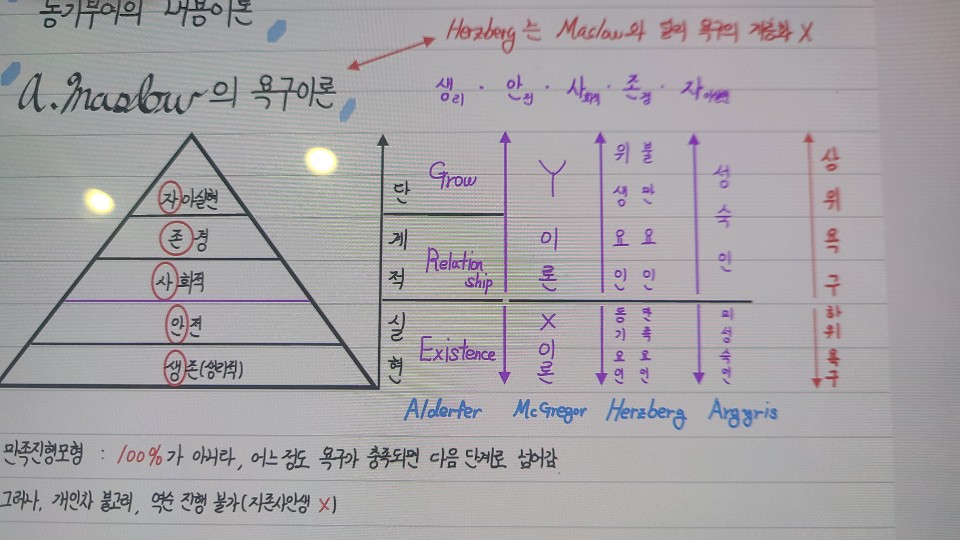 동기부여의 내용이론
Herzberg는 Maslow와 달리 욕구의 계층화 X
A.Maslow의 욕구이론
생리 · 안전 · 사회적 · 존경 · 자아실현
자아실현
존경
사회적
안전
생존(생리적)
단계적 실현
Grow
Relationship
Existence
Y이론
X이론
위생요인
불만요인
동기요인
만족요인
성숙인
미성숙인
상위욕구
하위욕구
Alderfer McGregor Herzberg Argyris
만족진행모형 : 100%가 아니라, 어느정도 욕구가 충족되면 다음 단계로 넘어감
그러나, 개인차 불고려, 역순 진행 불가(자존사안생 X)